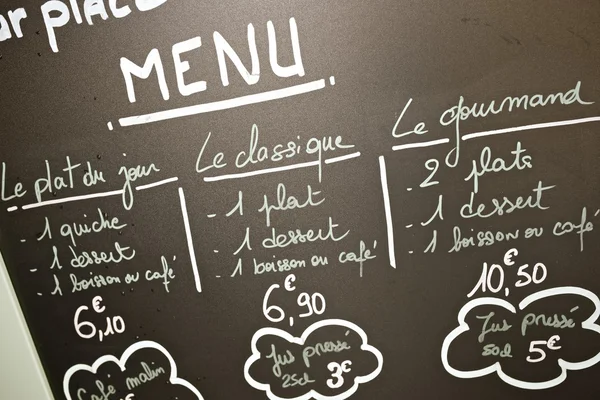 ur place
MENU
Le plat du jour
- 1 quiche
- 1 dessert
- 1 boisson ou café
6,10€
Café malin
Le classique
- 1 plat
- 1 dessert
- 1 boisson ou café
6,90€
Jus pressé
25cl 3€
Le gourmand
- 2 plats
- 1 dessert
- 1 boisson ou café
10,50€
Jus pressé
50cl 5€